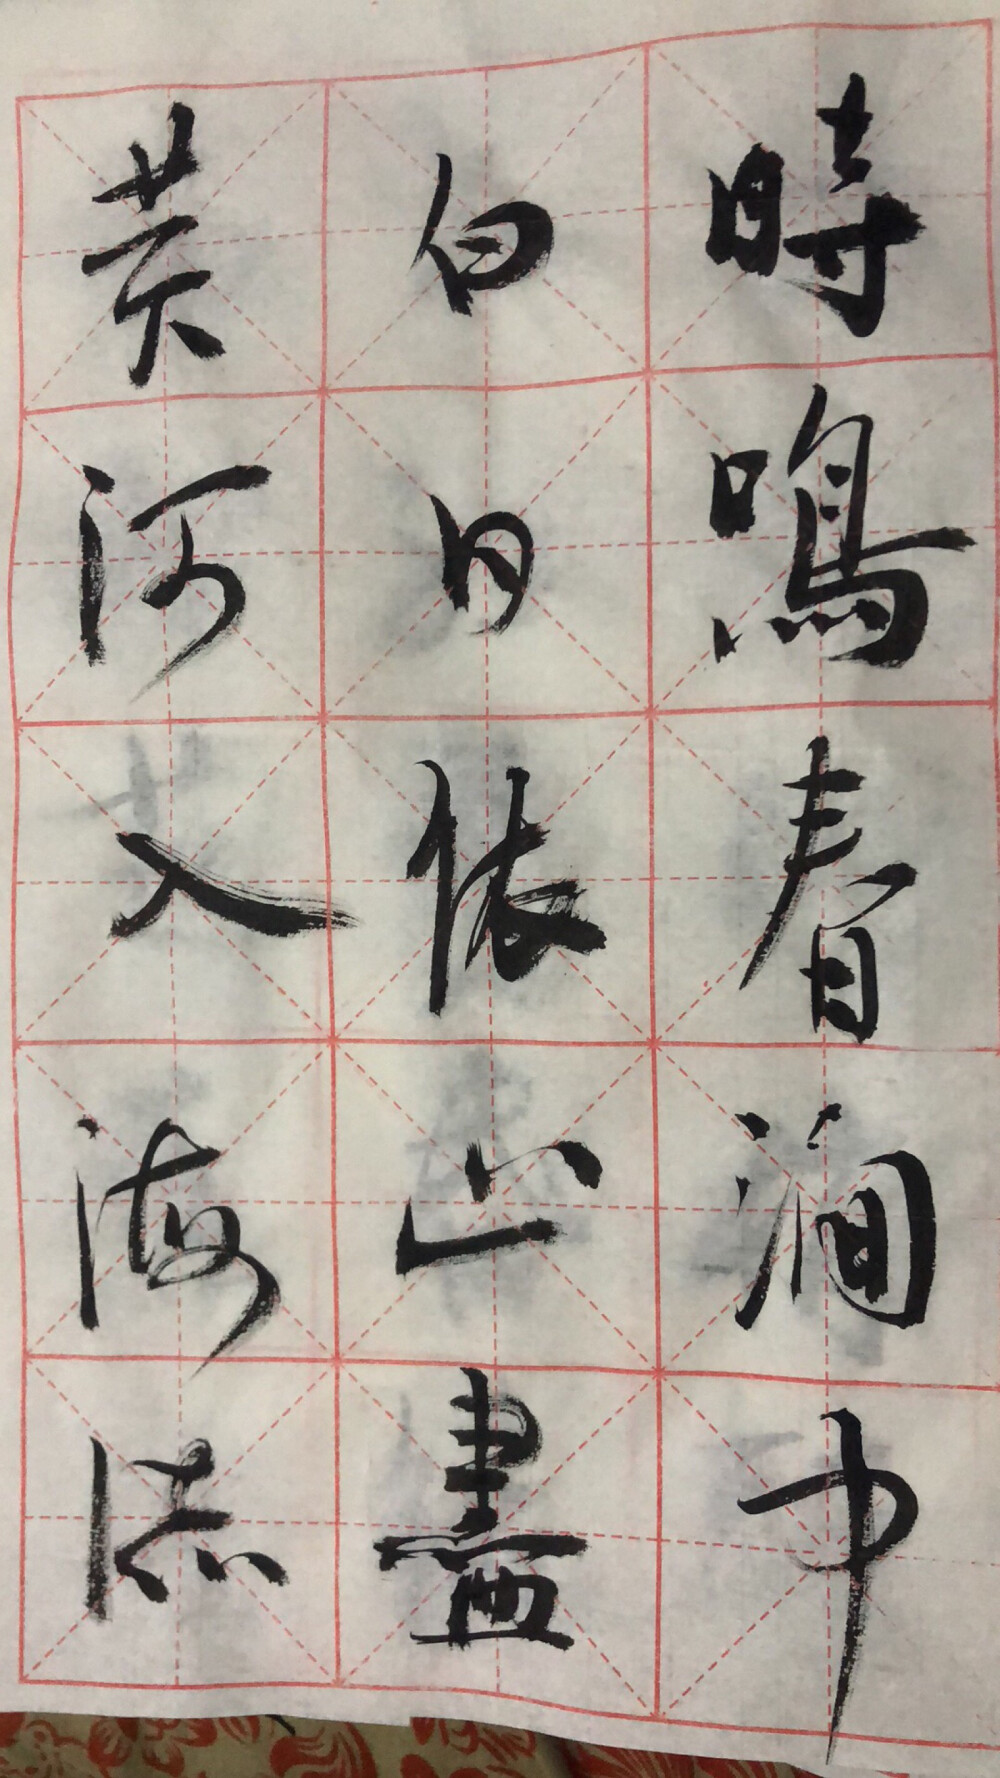 時鳴春澗中
白日依山盡
黄河入海流